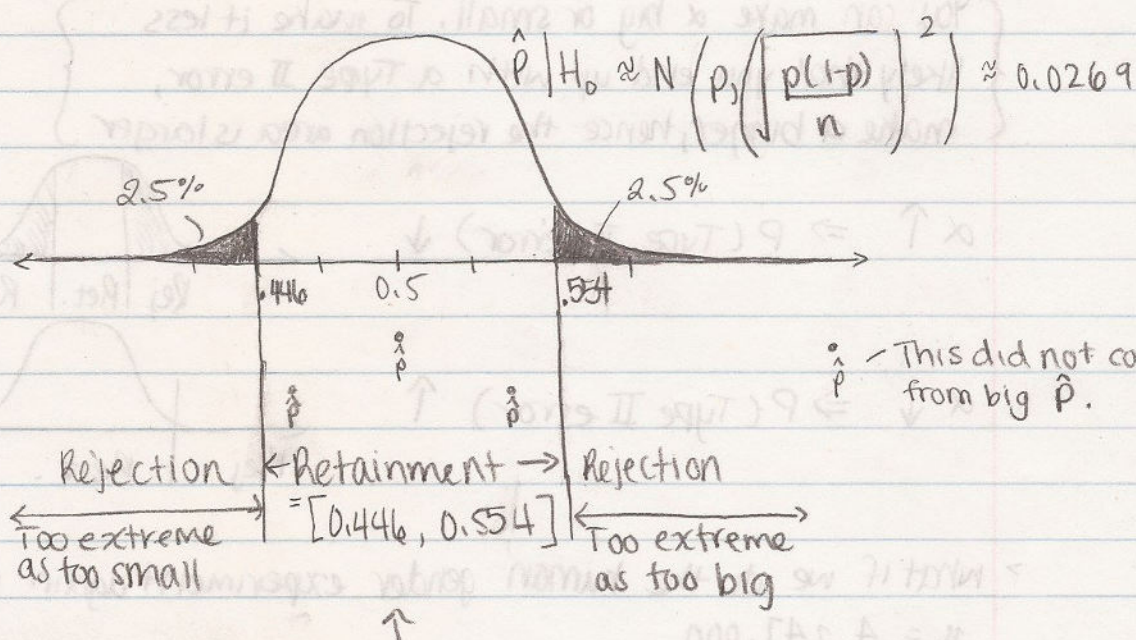 P̂ | H₀ ≈ N(p, (√(p(1-p)/n))²) ≈ 0.0269
2.5%
2.5%
.446
0.5
.554
p̂
p̂
p̂
p̂ – This did not co
from big P̂.
Rejection ← Retainment → Rejection
= [0.446, 0.554]
Too extreme
as too small
Too extreme
as too big